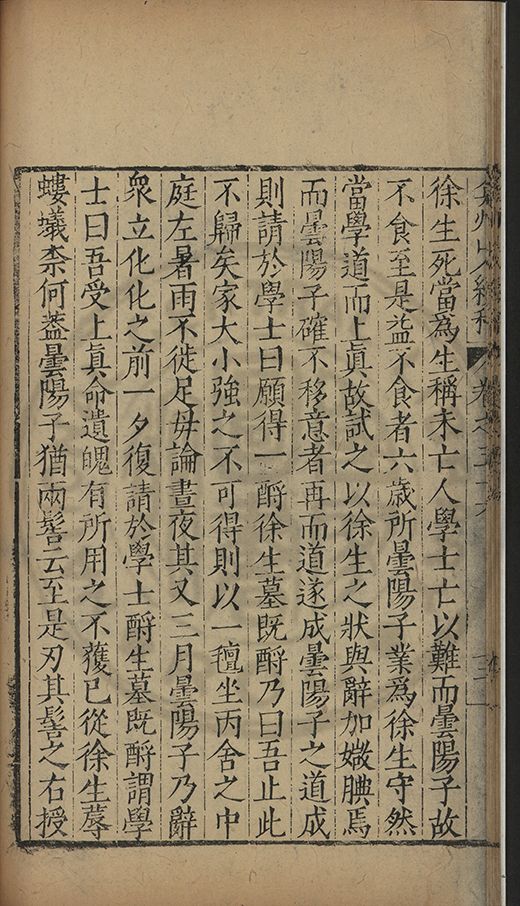 弇州山人續稿 卷之
徐生死當爲生稱未亡人學士亡以難而曇陽子故
不食至是益不食者六歲所曇陽子業爲徐生守然
當學道而上眞故試之以徐生之狀與辭加媺腆焉
而曇陽子確不移意者再而道遂成曇陽子之道成
則請於學士曰願得一酹徐生墓既酹乃曰吾止此
不歸矣家大小強之不可得則以一氊坐丙舍之中
庭左暑雨不徙足毋論晝夜其又三月曇陽子乃辭
衆立化化之前一夕復請於學士酹生墓既酹謂學
士曰吾受上眞命遺魄有所用之不獲已從徐生蓐
螻蟻柰何葢曇陽子猶兩髻云至是刃其髻之右授